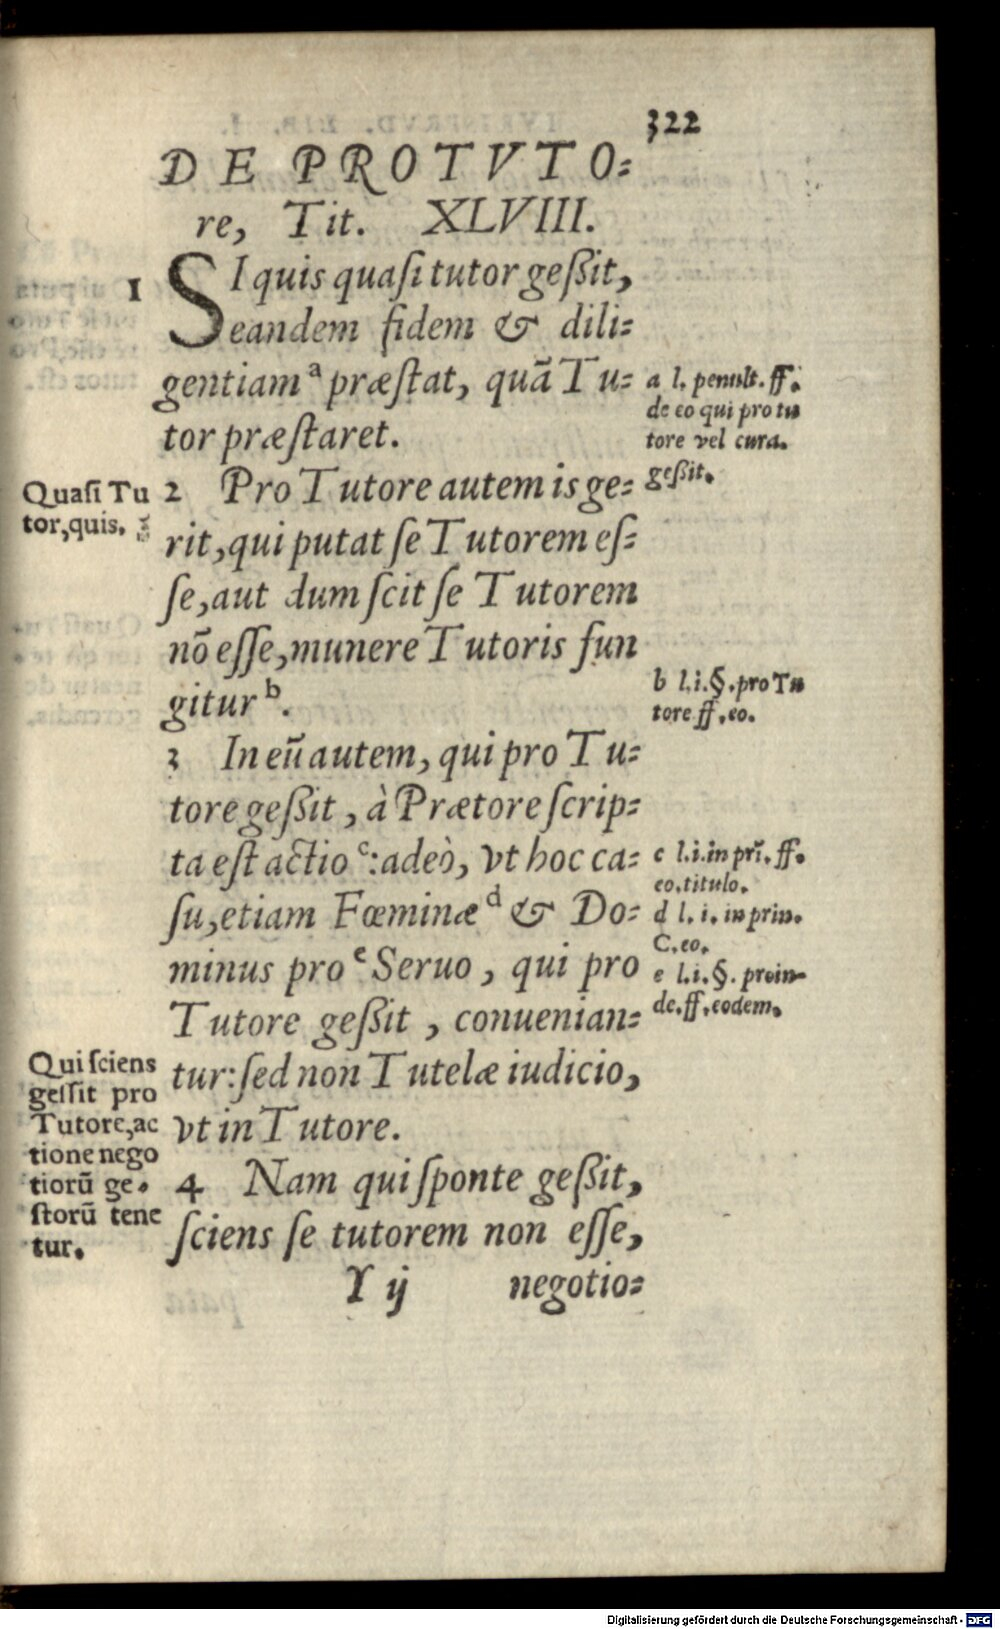 322
DE PROTVTO-
re, Tit. XLVIII.
1 SI quis quasi tutor geßit,
eandem fidem & dili-
gentiam ᵃ præstat, quā Tu-
tor præstaret.
a l. penult. ff.
de eo qui pro tu
tore vel cura.
geßit.
Quasi Tu
tor, quis.
2 Pro Tutore autem is ge-
rit, qui putat se Tutorem es-
se, aut dum scit se Tutorem
nō esse, munere Tutoris fun
gitur ᵇ.
b l.i.§. pro Tu
tore ff. eo.
3 In eū autem, qui pro Tu-
tore geßit, à Prætore scrip-
ta est actio ᶜ: adeò, vt hoc ca-
su, etiam Fœminæ ᵈ & Do-
minus pro ᵉ Seruo, qui pro
Tutore geßit, conuenian-
tur: sed non Tutelæ iudicio,
vt in Tutore.
c l.i.in prī. ff.
eo. titulo.
d l. i. in prin.
C. eo.
e l.i.§. proin-
de. ff. eodem.
Qui sciens
gessit pro
Tutore, ac
tione nego
tiorū ge-
storū tene
tur.
4 Nam qui sponte geßit,
sciens se tutorem non esse,
Y ij negotio-
Digitalisierung gefördert durch die Deutsche Forschungsgemeinschaft - DFG